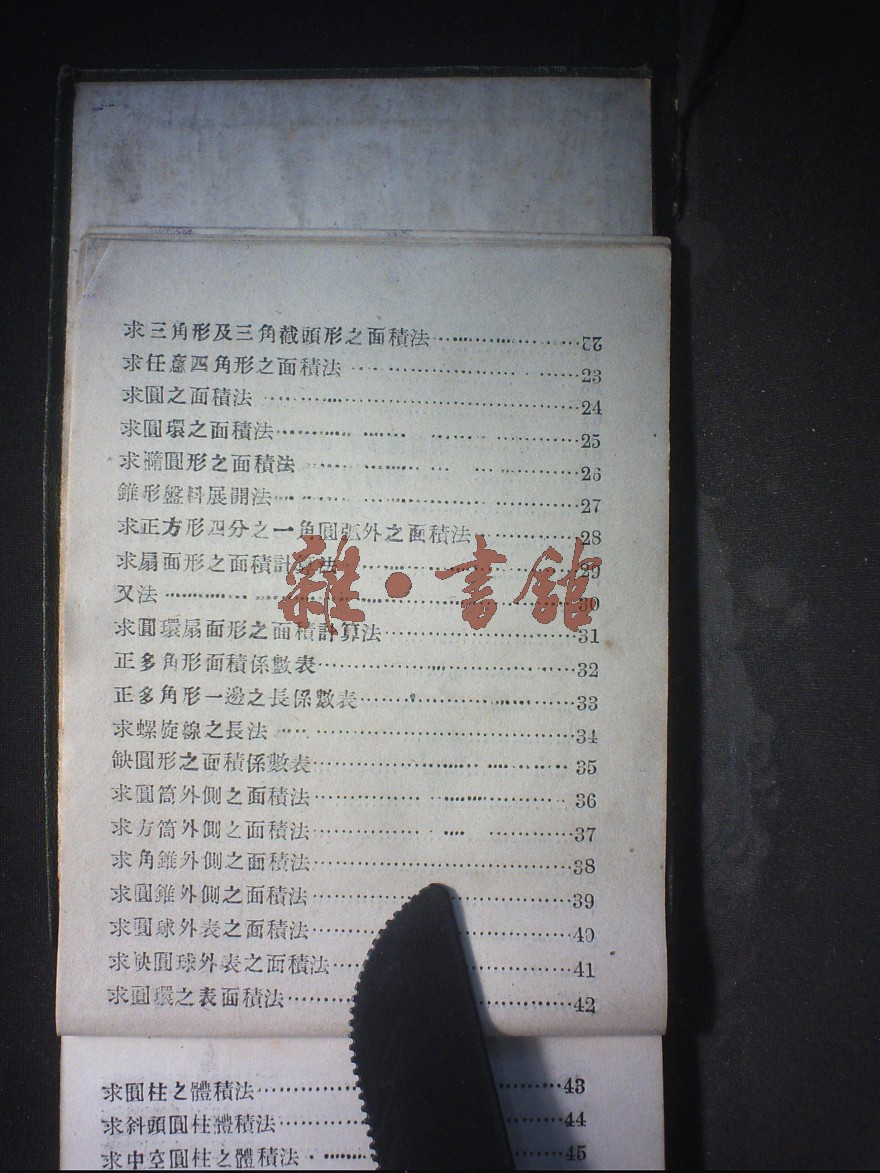 求三角形及三角截頭形之面積法…………………22
求任意四角形之面積法…………………23
求圓之面積法…………………24
求圓環之面積法…………………25
求橢圓形之面積法…………………26
錐形盤料展開法…………………27
求正方形四分之一角圓弧外之面積法…………………28
求扇面形之面積計算法…………………29
又法…………………30
求圓環扇面形之面積計算法…………………31
正多角形面積係數表…………………32
正多角形一邊之長係數表…………………33
求螺旋線之長法…………………34
缺圓形之面積係數表…………………35
求圓筒外側之面積法…………………36
求方筒外側之面積法…………………37
求角錐外側之面積法…………………38
求圓錐外側之面積法…………………39
求圓球外表之面積法…………………40
求缺圓球外表之面積法…………………41
求圓環之表面積法…………………42
求圓柱之體積法…………………43
求斜頭圓柱體積法…………………44
求中空圓柱之體積法…………………45
雜·書館